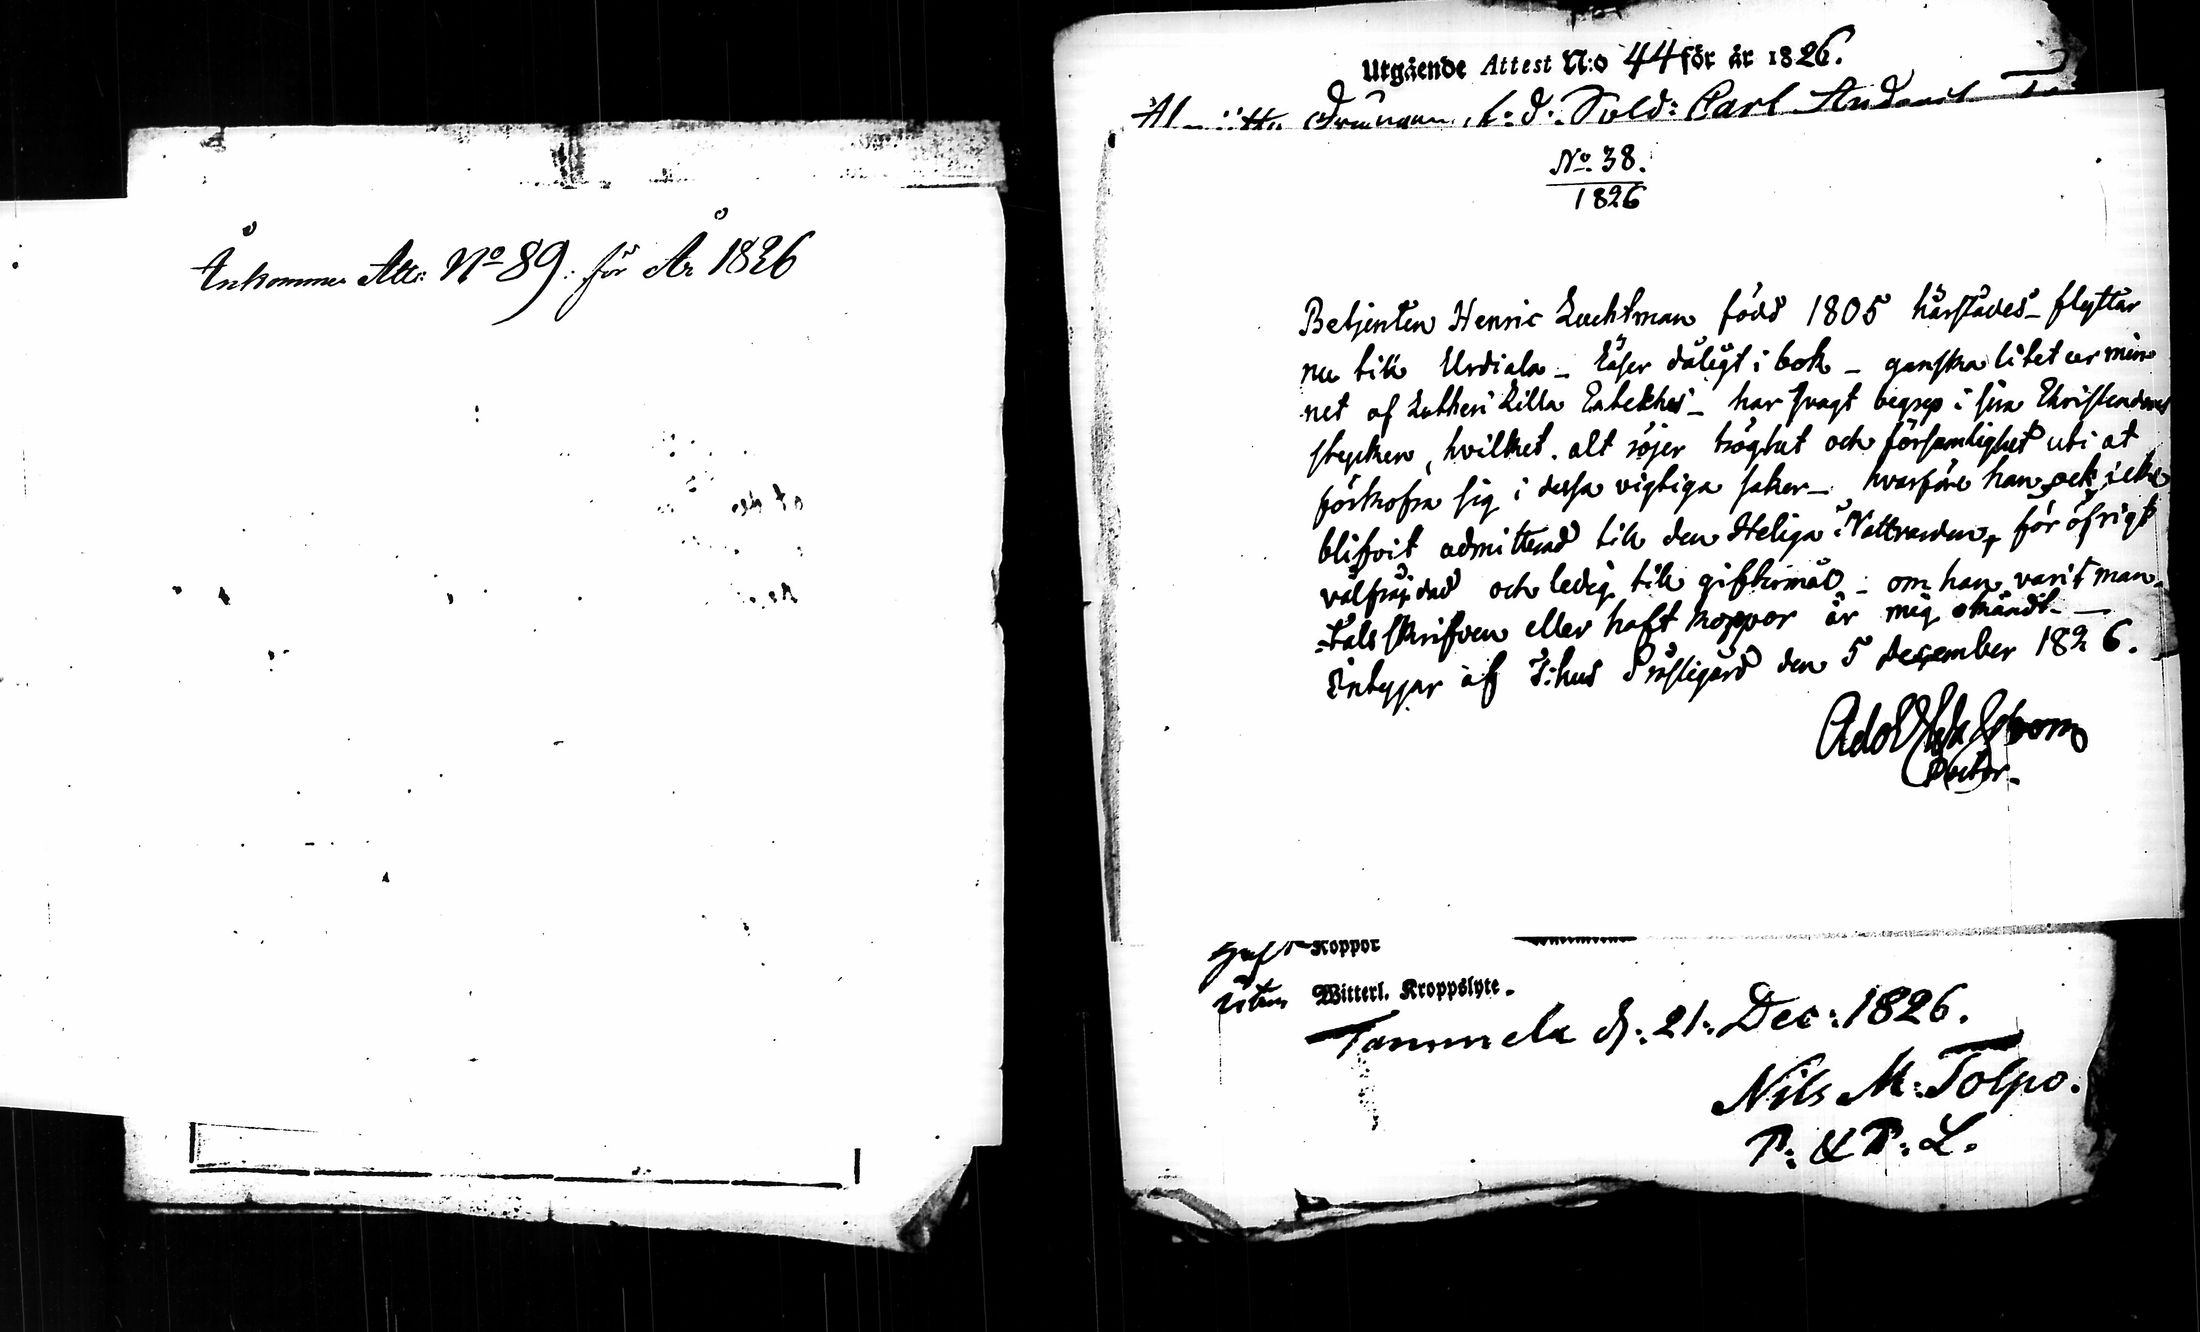 Ankommen Att: No 89. för År 1826
Utgående Attest N:o 44 för år 1826.
f: d: Sold: Carl
No. 38.
1826
Betjenten Henric Lucktman född 1805 härstädes – flyttar
nu till Urdiala – läser dåligt i bok – ganska litet ur min
net af Lutheri Lilla Catekhes – har svagt begrep i sina Christendoms
stycken, hvilket alt röjer tröghet och försumlighet uti at
förkofra sig i dessa vigtiga saker – hvarföre han ock icke
blifvit admitterad till den Heliga Nattvarden, för öfrigt
välfräjdad och ledig till giftermål – om han varit man-
talsskrifven eller haft koppor är mig okändt –
Intygar af T:hus Prästegård den 5 december 1826.
Adol
Pastor.
Haft Koppor
utan Witterl. Kroppslyte.
Tammela d: 21: Dec: 1826.
Nils M: Tolpo.
P: & P: L.